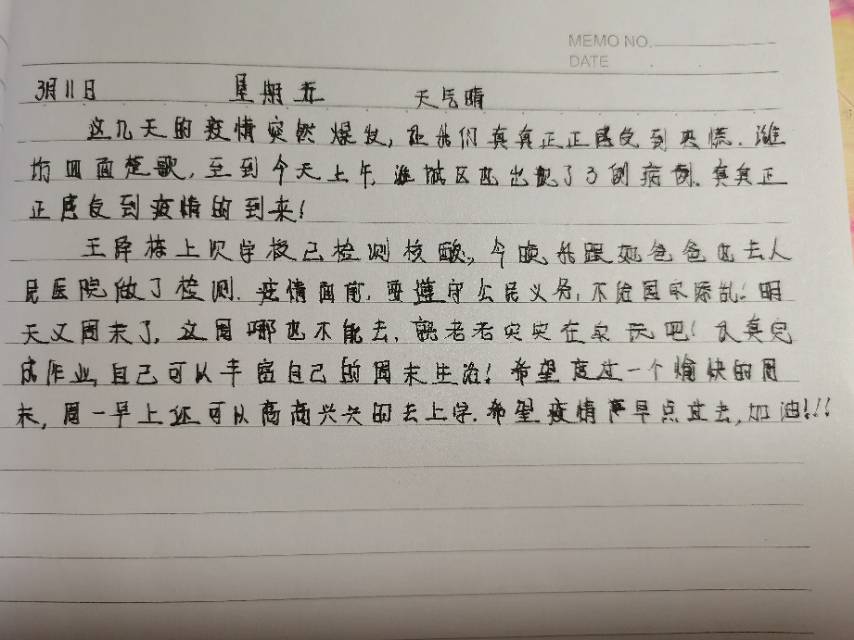 MEMO NO.
DATE
3月11日 星期五 天气晴
这几天的疫情突然爆发,让我们真真正正感受到恐慌.潍
坊四面楚歌,至到今天上午,潍城区也出现了3例病例.真真正
正感受到疫情的到来!
王泽栋上次学校已检测核酸,今晚我跟她爸爸也去人
民医院做了检测.疫情面前,要遵守公民义务,不给国家添乱!明
天又周末了,这周哪也不能去,就老老实实在家玩吧!认真完
成作业,自己可以丰富自己的周末生活!希望度过一个愉快的周
末,周一早上还可以高高兴兴的去上学.希望疫情早点过去,加油!!!